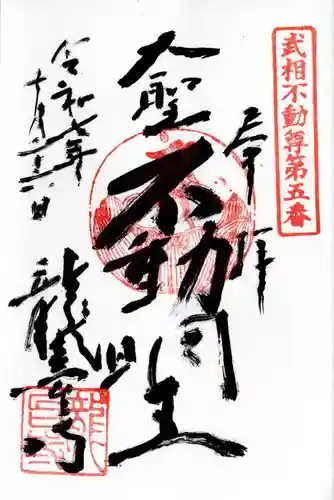 武相不動尊第五番
奉拝
大聖不動明王
令和七年
十月二十六日